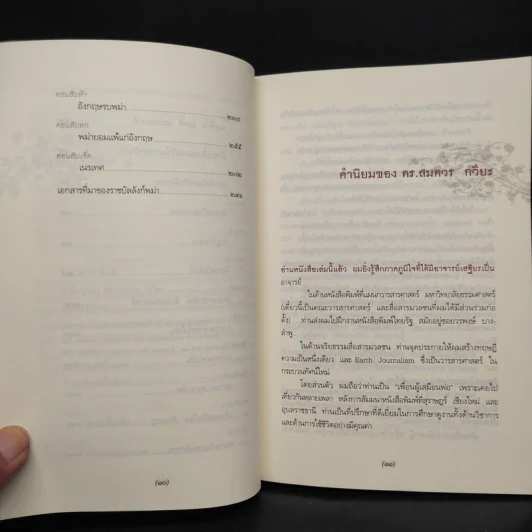 ตอนสิบห้า
อังกฤษรบพม่า..........๒๓๗
ตอนสิบหก
พม่ายอมแพ้แก่อังกฤษ..........๒๕๕
ตอนสิบเจ็ด
เนรเทศ..........๒๗๒
เอกสารที่มาของราชบัลลังก์พม่า..........๒๘๑
(๑๐)
คำนิยมของ ดร.สมควร กวียะ
อ่านหนังสือเล่มนี้แล้ว ผมยิ่งรู้สึกภาคภูมิใจที่ได้มีอาจารย์เสฐียรเป็น
อาจารย์
ในด้านหนังสือพิมพ์ที่แผนกวารสารศาสตร์ มหาวิทยาลัยธรรมศาสตร์
(เดี๋ยวนี้เป็นคณะวารสารศาสตร์ และสื่อสารมวลชนที่ผมได้มีส่วนร่วมก่อ
ตั้ง) ท่านส่งผมไปฝึกงานหนังสือพิมพ์ไทยรัฐ สมัยอยู่ซอยวรพงษ์ บาง-
ลำพู
ในด้านจริยธรรมสื่อสารมวลชน ท่านจุดประกายให้ผมสร้างทฤษฎี
ความเป็นหนึ่งเดียว และ Earth Journalism ซึ่งเป็นวารสารศาสตร์ ใน
กระบวนทัศน์ใหม่
โดยส่วนตัว ผมถือว่าท่านเป็น "เพื่อนผู้เสมือนพ่อ" เพราะเคยไป
เที่ยวกันหลายเพลา หลังการสัมมนาหนังสือพิมพ์ที่สุราษฎร์ เชียงใหม่ และ
อุบลราชธานี ท่านเป็นที่ปรึกษาที่ดีเยี่ยมในการศึกษาดูงานทั้งด้านวิชาการ
และด้านการใช้ชีวิตอย่างมีคุณค่า
(๑๑)